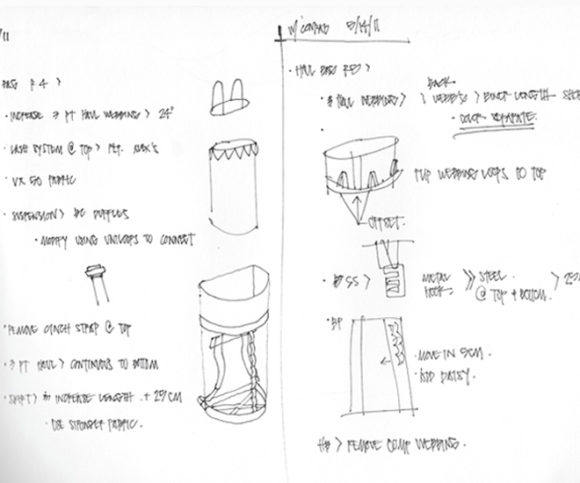 /11
BAG # 4 >
· INCREASE 3 PT HAUL WEBBING > 24"
· LASH SYSTEM @ TOP >
· VX 50 FABRIC
· SUSPENSION > BC DUFFLES
· MODIFY USING UNILOOPS TO CONNECT
· REMOVE CINCH STRAP @ TOP
· 3 PT HAUL > CONTINUOUS TO BOTTOM
INCREASE LENGTH . + 25 CM
· USE STRONGER FABRIC.
W/ CONRAD 5/14/11
· HAUL BAG
BACK.
· HAUL WEBBING >
· COLOR SEPARATE.
FLIP WEBBING LOOPS TO TOP
OFFSET.
METAL HOOK > STEEL.
@ TOP + BOTTOM.
· BP
· MOVE IN 5CM.
· ADD DAISY.
HB > REMOVE COMP WEBBING.